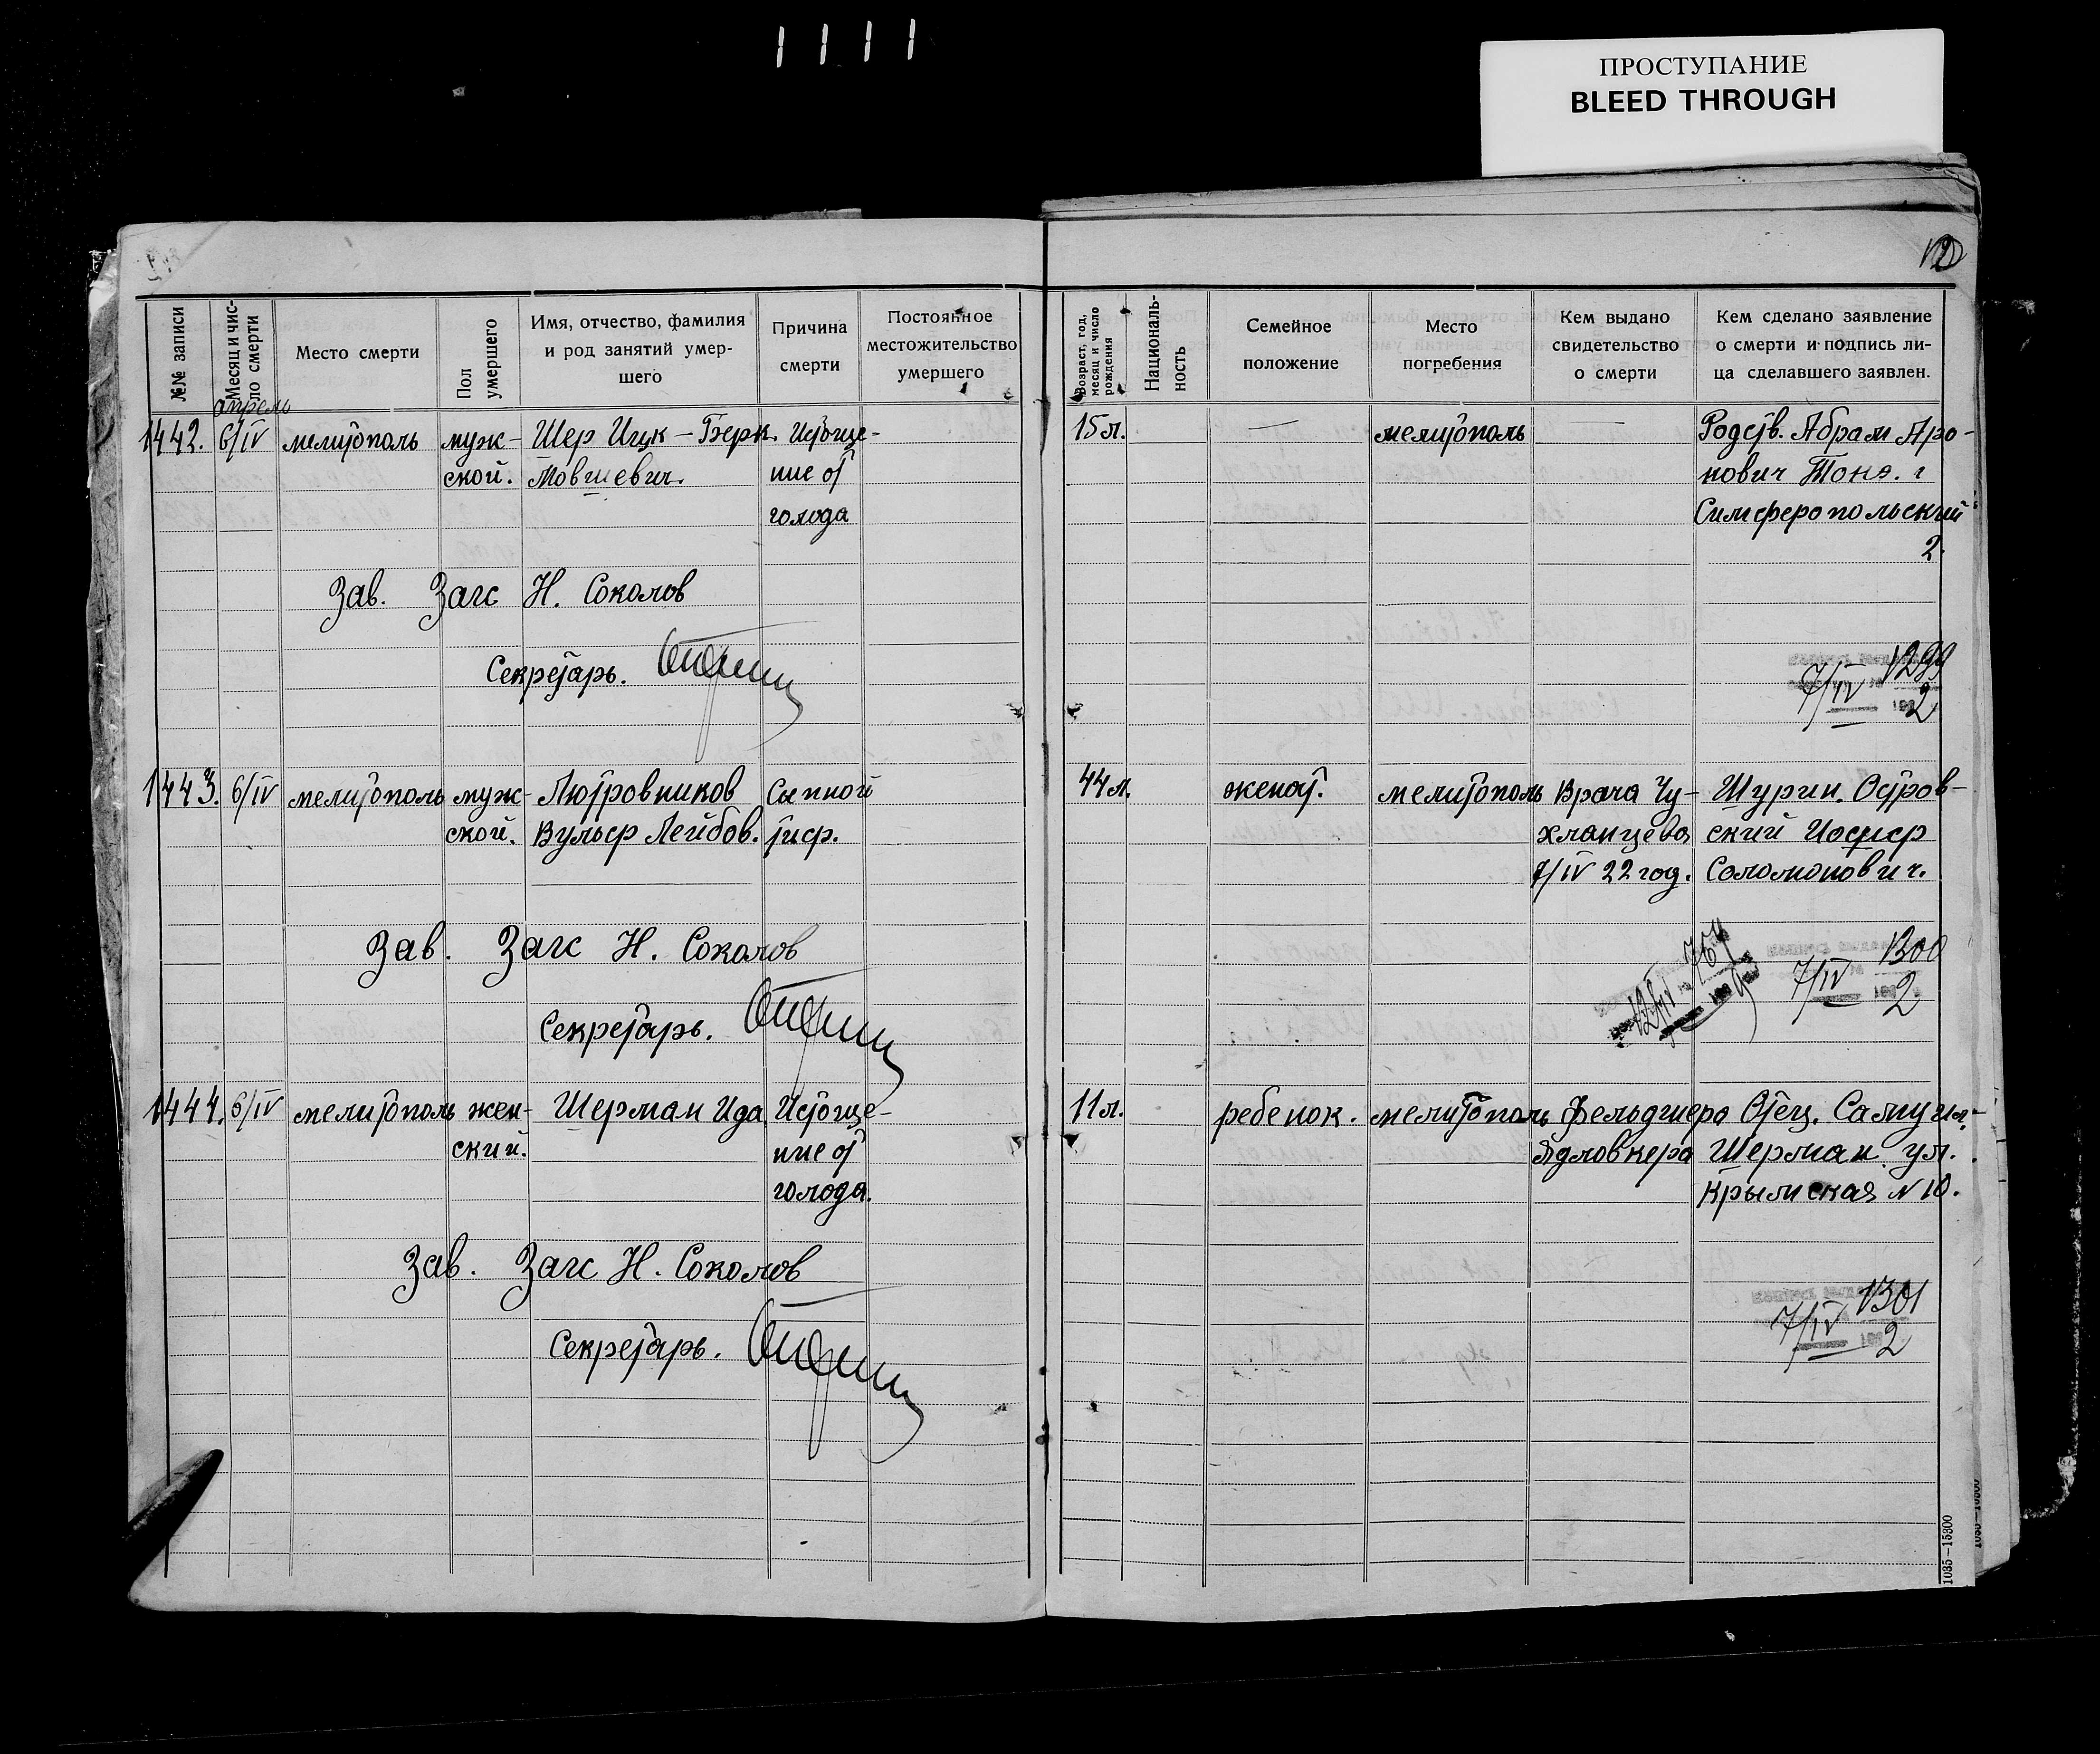 ПРОСТУПАНИЕ
BLEED THROUGH
№№ записи
Месяц и чис-
ло смерти
Место смерти
Пол
умершего
Имя, отчество, фамилия
и род занятий умер-
шего
Причина
смерти
Постоянное
местожительство
умершего
Возраст, год,
месяц и число
рождения
Националь-
ность
Семейное
положение
Место
погребения
Кем выдано
свидетельство
о смерти
Кем сделано заявление
о смерти и подпись ли-
ца сделавшего заявлен.
апрель
1442. 6/IV мелитополь муж- Шер Ицк-Берк. Истоще- 15 л. — мелитополь — Родств. Абрам Аро-
ской. Мовшевич. ние от нович
голода Симферопольский
2.
Зав. Загс Н. Соколов
Секретарь.
7/IV 1299
2
1443. 6/IV мелитополь муж- Лютровников Сыпной 44 л. женат. мелитополь Врача Чу- Шурин. Остров-
ской. Вульф Лейбов. тиф. хланцева ский Иосиф
7/IV 22 год. Соломонович.
Зав. Загс Н. Соколов
7/IV 1300
2
Секретарь.
1444. 6/IV мелитополь жен- Шерман Ида. Истоще- 11 л. ребенок. мелитополь Фельдшера Отец. Самуил.
ский. ние от Ядловкера Шерман. ул.
голода. Крымская № 10.
Зав. Загс Н. Соколов
7/IV 1301
2
Секретарь.
1035—15300